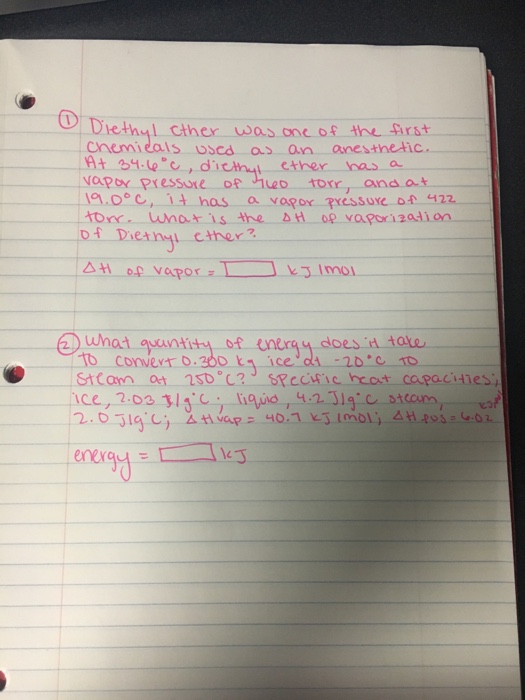 ① Diethyl ether was one of the first
chemicals used as an anesthetic.
At 34.6°C, diethyl ether has a
vapor pressure of 760 torr, and at
19.0°C, it has a vapor pressure of 422
torr. What is the ΔH of vaporization
of Diethyl ether?
ΔH of vapor = kJ/mol
② What quantity of energy does it take
to convert 0.300 kg ice at -20°C to
steam at 250°C? Specific heat capacities;
ice, 2.03 J/g°C; liquid, 4.2 J/g°C steam,
2.0 J/g°C; ΔHvap = 40.7 kJ/mol; ΔH fus = 6.02
energy = kJ